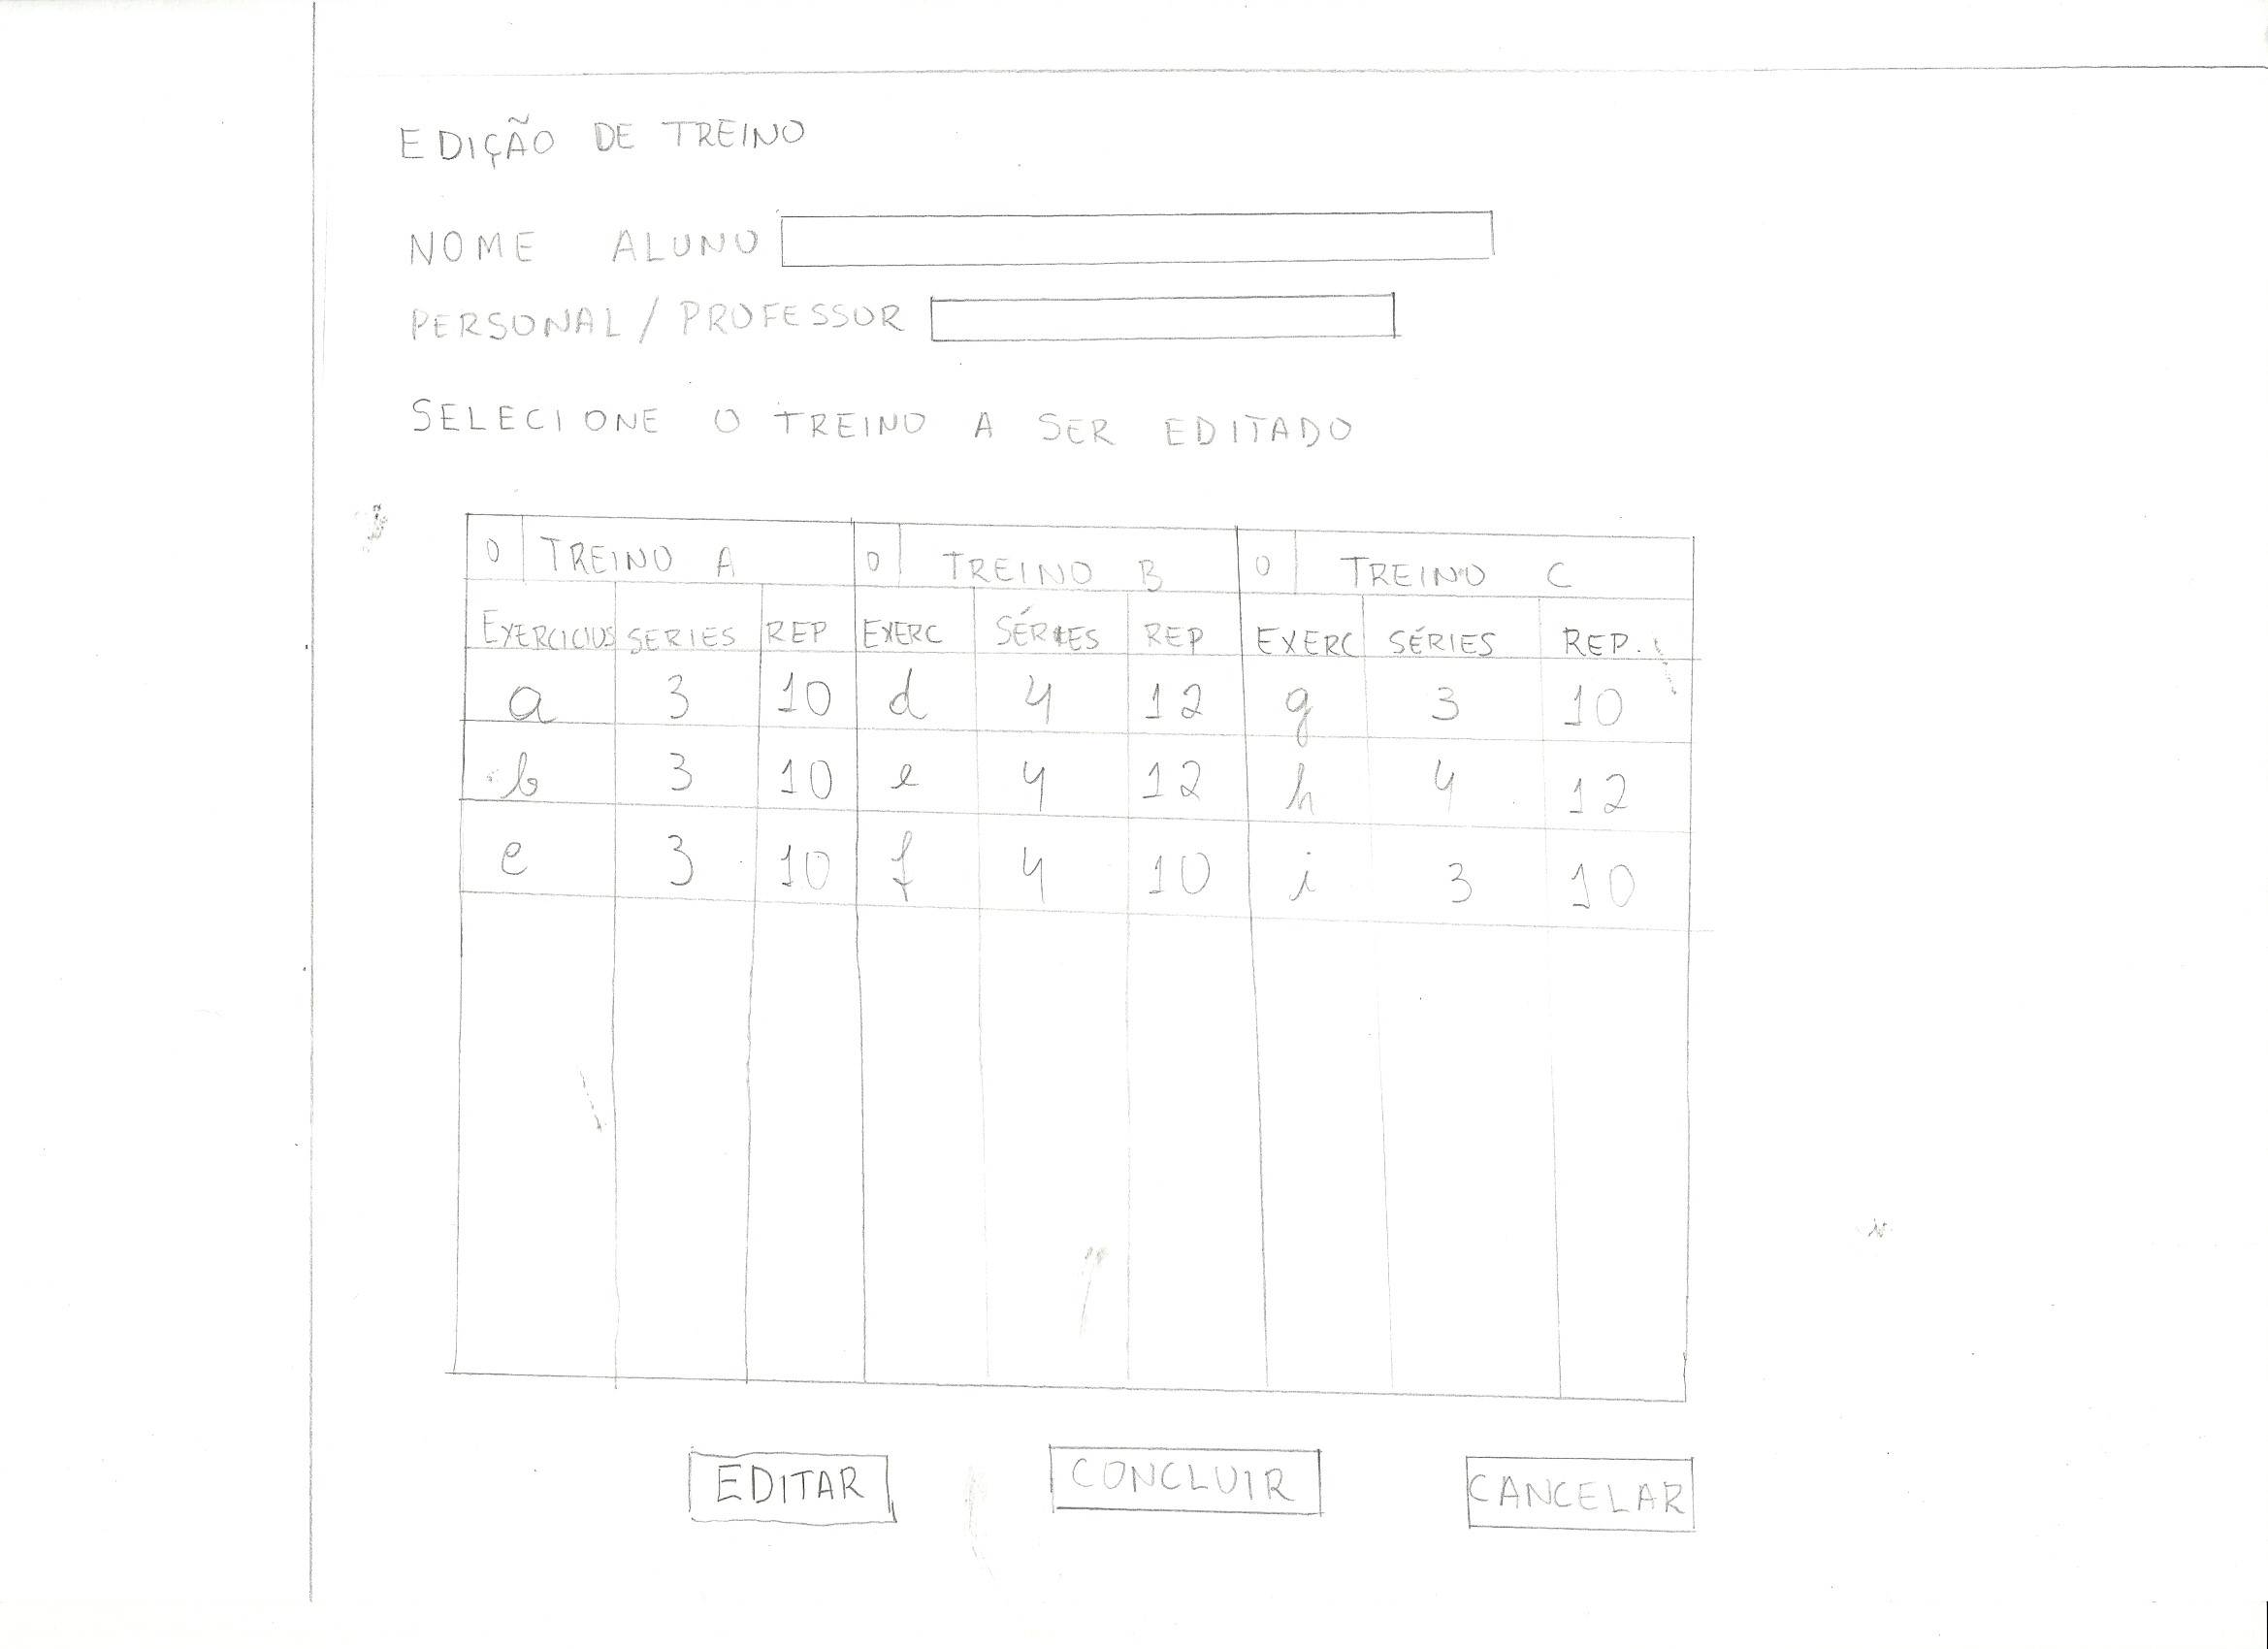 EDIÇÃO DE TREINO
NOME ALUNO
PERSONAL/PROFESSOR
SELECIONE O TREINO A SER EDITADO
O TREINO A O TREINO B O TREINO C
EXERCICIOS SERIES REP EXERC SÉRIES REP EXERC SÉRIES REP.
a 3 10 d 4 12 g 3 10
b 3 10 e 4 12 h 4 12
c 3 10 f 4 10 i 3 10
EDITAR CONCLUIR CANCELAR